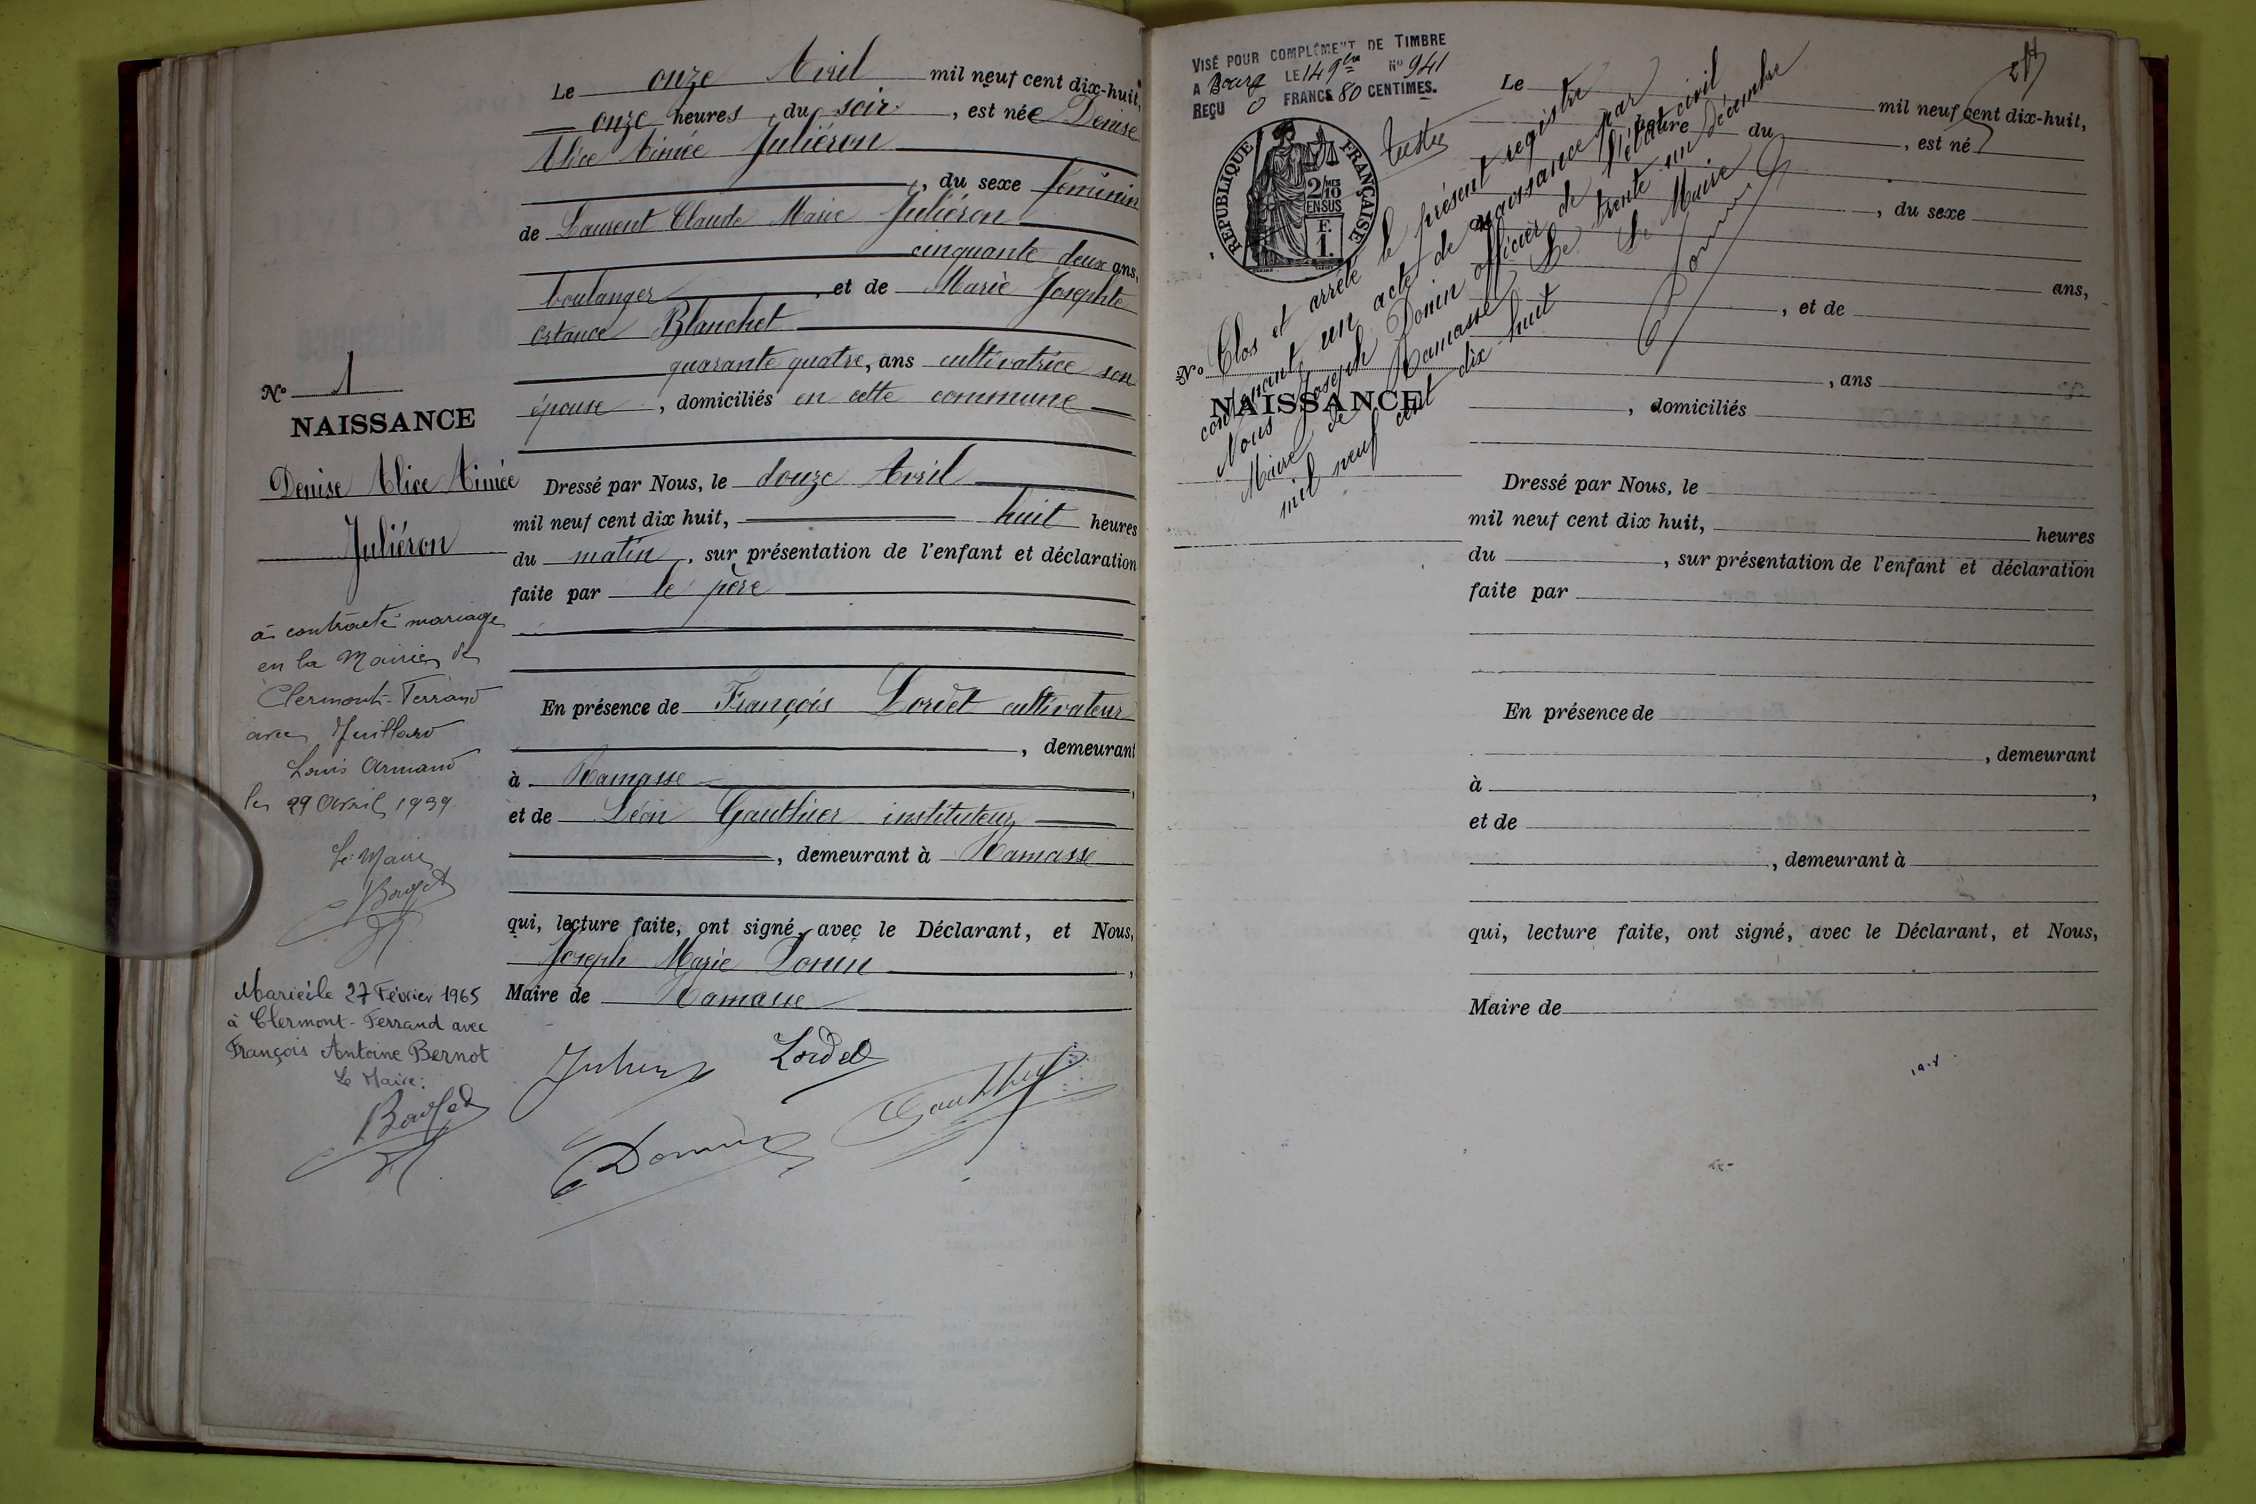 N° 1
NAISSANCE
Denise Alice Aimée
Juliéron
a contracté mariage
en la Mairie de
Clermont-Ferrand
avec Juillard
Louis Armand
le 29 Avril 1939
Le Maire
Marié le 27 Février 1965
à Clermont-Ferrand avec
François Antoine Bernot
Le Maire:
Le onze Avril mil neuf cent dix-huit,
onze heures du soir, est née Denise
Alice Aimée Juliéron
, du sexe féminin
de Laurent Claude Marie Juliéron
cinquante deux ans,
boulanger, et de Marie Josephte
Blanchet
quarante quatre, ans cultivatrice son
épouse, domiciliés en cette commune
Dressé par Nous, le douze Avril
mil neuf cent dix huit, huit heures
du matin, sur présentation de l'enfant et déclaration
faite par le père
En présence de François Lordet cultivateur
, demeurant
à Ramasse,
et de Léon Gauthier instituteur
, demeurant à Ramasse
qui, lecture faite, ont signé, avec le Déclarant, et Nous,
Joseph Marie Donin,
Maire de Ramasse
Lordet
Donin
Gauthier
VISÉ POUR COMPLÉMENT DE TIMBRE
A Bourg LE 14 9bre N° 941
REÇU 0 FRANCS 80 CENTIMES.
RÉPUBLIQUE FRANÇAISE
2/10 MES
EN SUS
F.
1.
Clos et arrêté le présent registre
contenant un acte de naissance par
Nous Joseph Donin officier de l'état civil
Maire de Ramasse le trente un décembre
mil neuf cent dix huit
Le Maire
Donin
N°
NAISSANCE
Le mil neuf cent dix-huit,
heure du , est né
, du sexe
ans,
, et de
, ans
, domiciliés
Dressé par Nous, le
mil neuf cent dix huit, heures
du , sur présentation de l'enfant et déclaration
faite par
En présence de
, demeurant
à ,
et de
, demeurant à
qui, lecture faite, ont signé, avec le Déclarant, et Nous,
Maire de